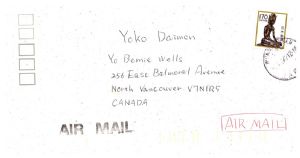 Yoko Daimon
c/o Bernie Wells
256 East Balmoral Avenue
North Vancouver V7N1R5
CANADA
170
AIR MAIL
AIR MAIL